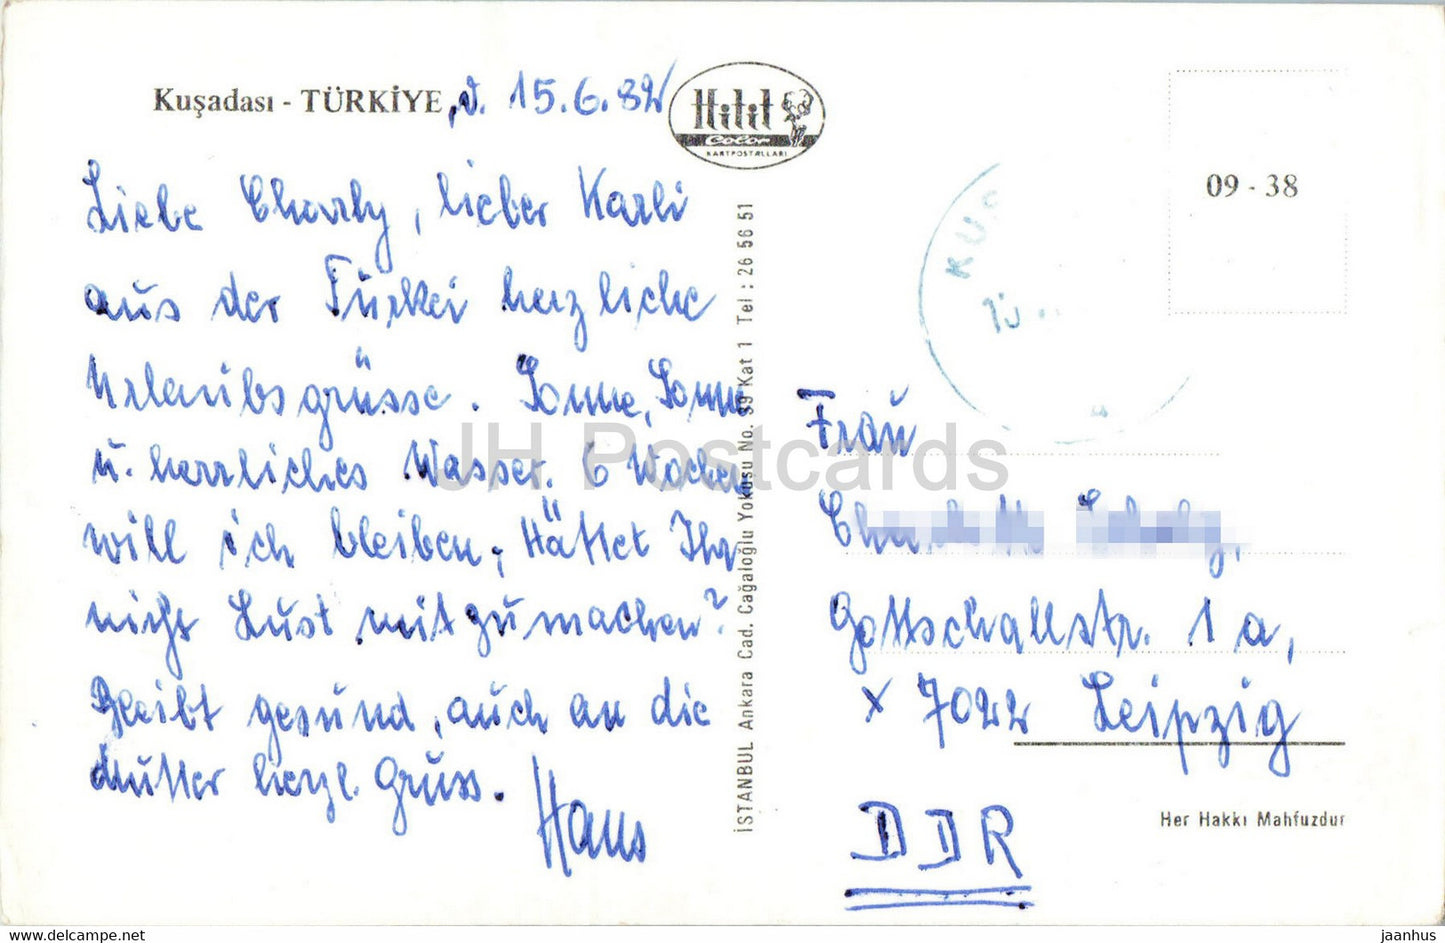 Kuşadası - TÜRKİYE, d. 15.6.82
Hitit
Color
KARTPOSTALLARI
Liebe Charly, lieber Karli
aus der Türkei herzliche
Urlaubsgrüsse. Sonne, Sonne
u. herrliches Wasser. 6 Wochen
will ich bleiben, Hättet Ihr
nicht Lust mitzumachen?
Bleibt gesund, auch an die
Mutter herzl. Gruss.
Hans
İSTANBUL Ankara Cad. Cağaloğlu Yokuşu No. 39 Kat 1 Tel : 26 56 51
09 - 38
KUŞ
Frau
Gottschallstr. 1 a,
x 7022 Leipzig
DDR
Her Hakkı Mahfuzdur
JH Postcards
www.delcampe.net
jaanhus